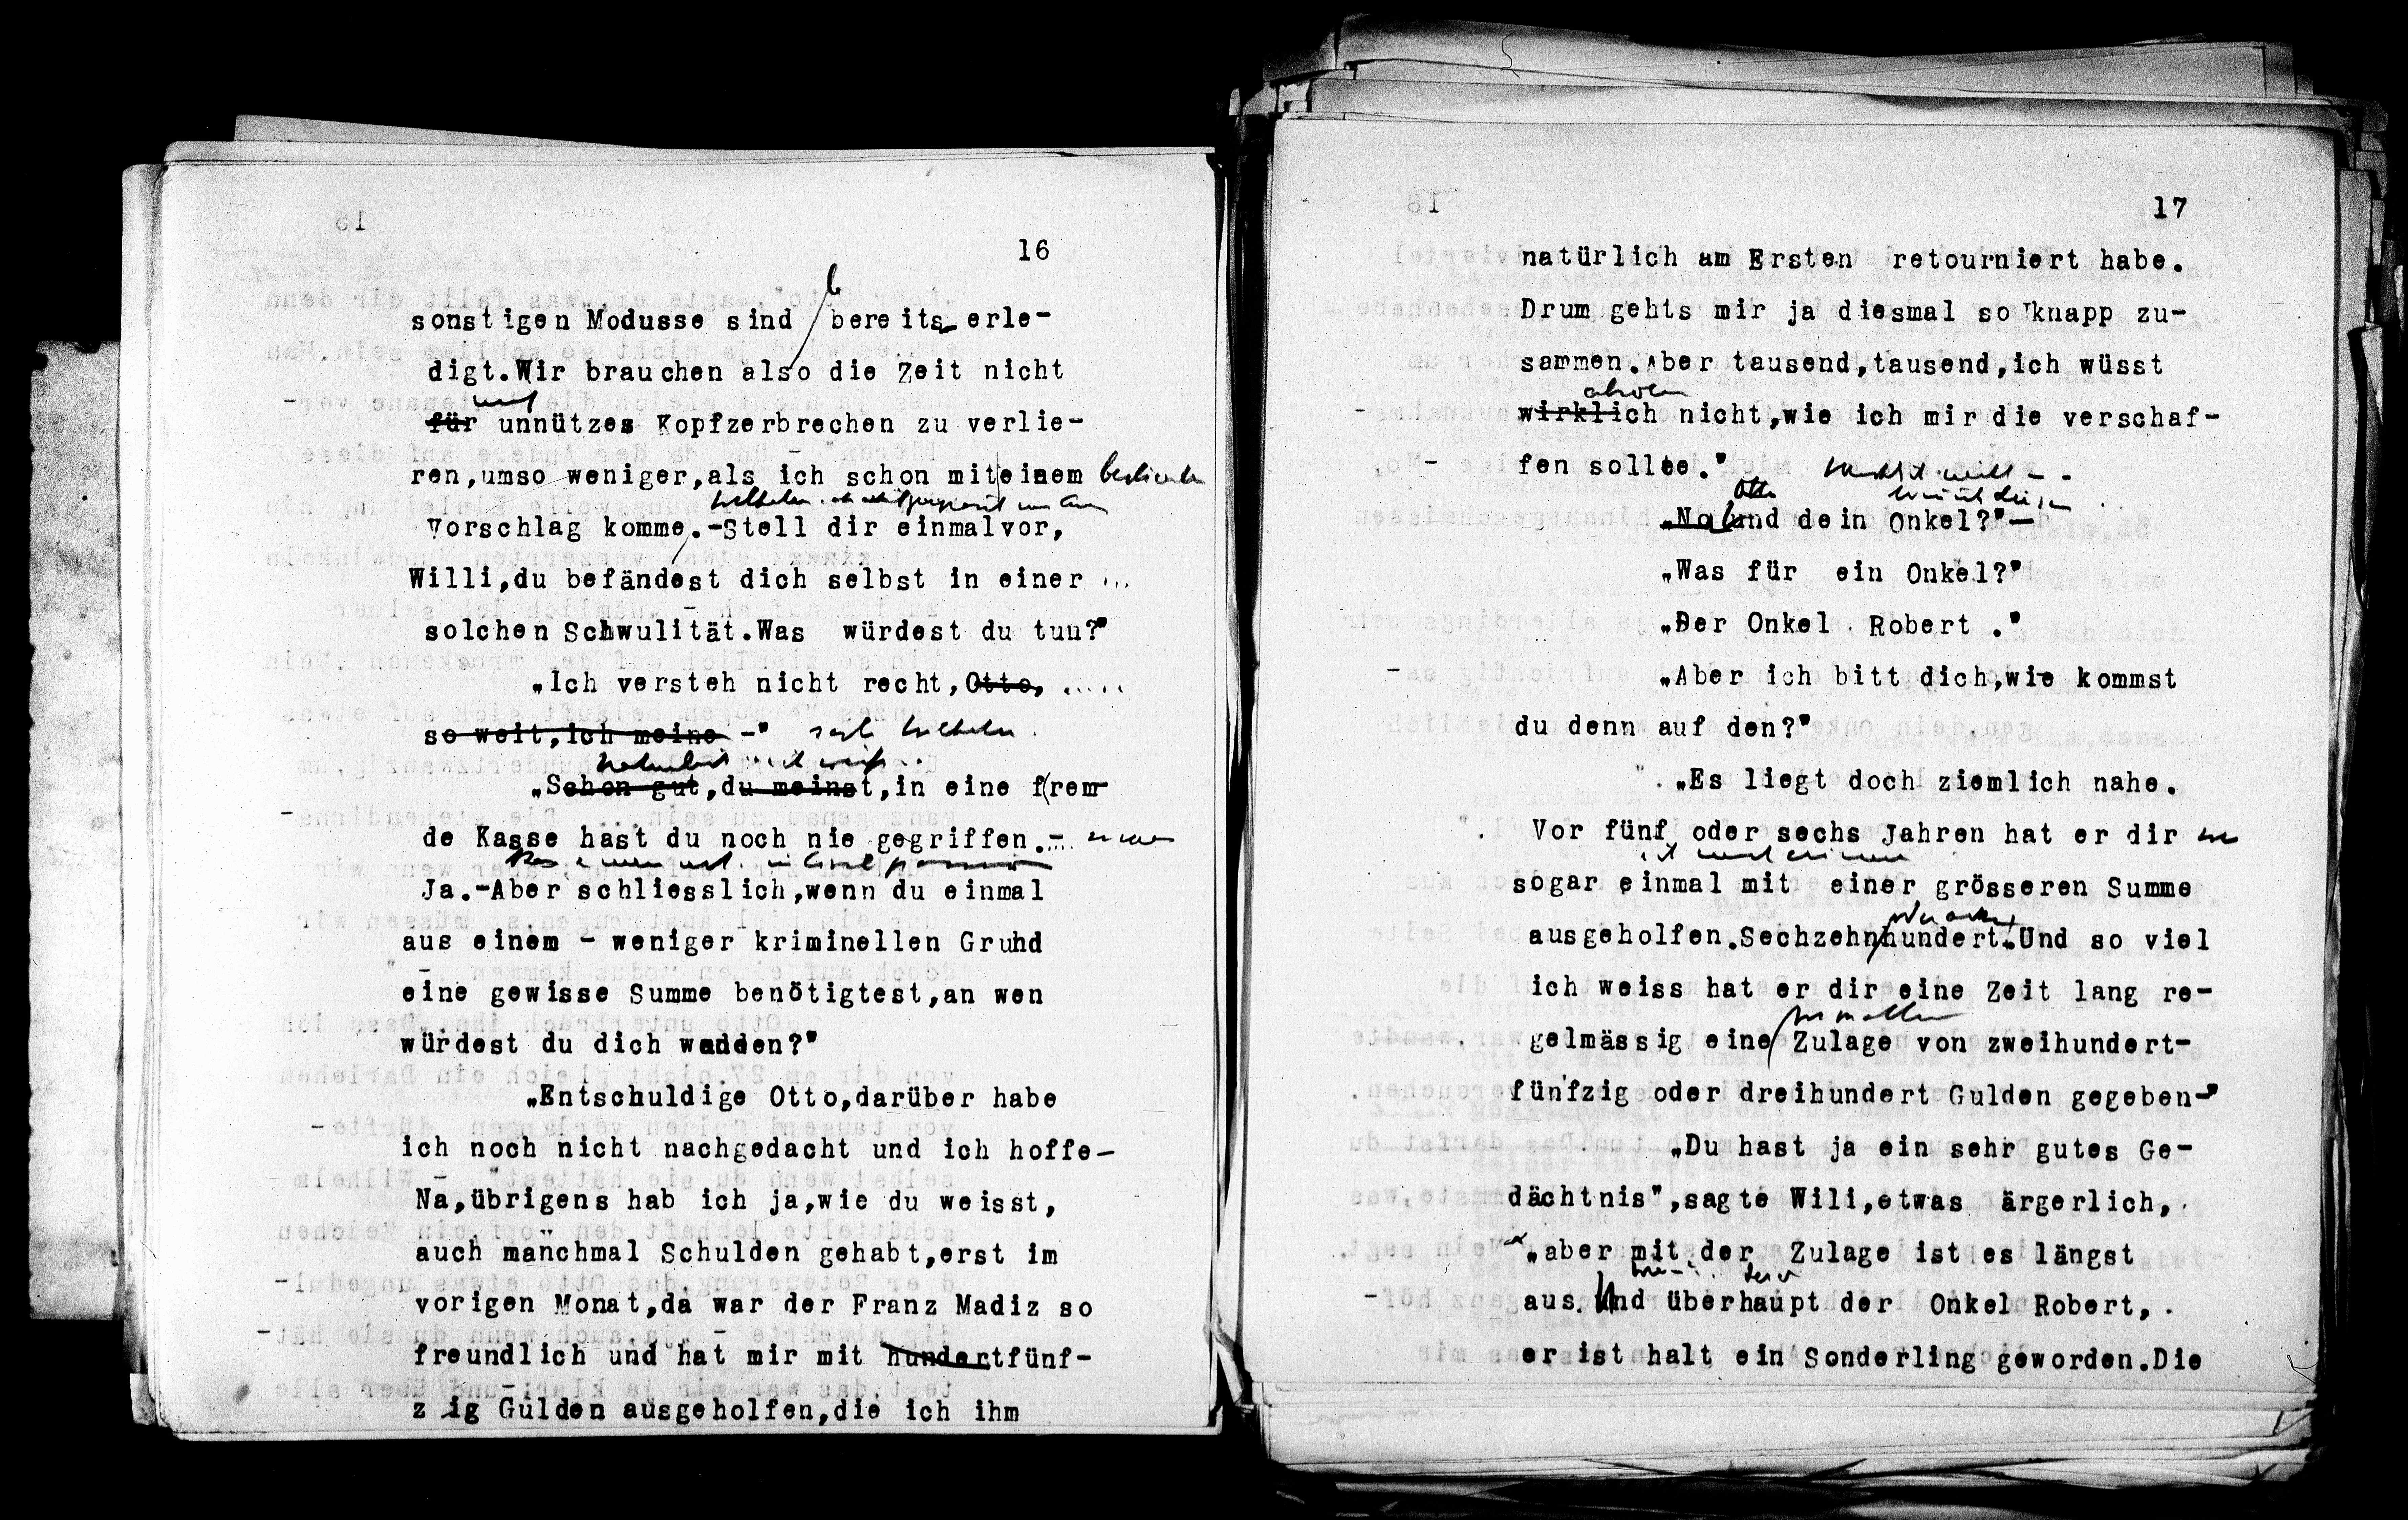 16
sonstigen Modusse sind bereits erle-
digt.Wir brauchen also die Zeit nicht
mit
für unnützes Kopfzerbrechen zu verlie-
ren,umso weniger,als ich schon mit einem
Vorschlag komme.-Stell dir einmalvor,
Willi,du befändest dich selbst in einer
solchen Schwulität.Was würdest du tun?"
„Ich versteh nicht recht,Otto,
so weit,ich meine -" sagte Wilhelm.
„Schon gut,du meinst,in eine frem-
de Kasse hast du noch nie gegriffen.-
Ja.-Aber schliesslich,wenn du einmal
aus einem - weniger kriminellen Gruhd
eine gewisse Summe benötigtest,an wen
würdest du dich wadden?"
„Entschuldige Otto,darüber habe
ich noch nicht nachgedacht und ich hoffe-
Na,übrigens hab ich ja,wie du weisst,
auch manchmal Schulden gehabt,erst im
vorigen Monat,da war der Franz Madiz so
freundlich und hat mir mit hundertfünf-
zig Gulden ausgeholfen,die ich ihm
17
natürlich am Ersten retourniert habe.
Drum gehts mir ja diesmal so knapp zu-
sammen.Aber tausend,tausend,ich wüsst
wirklich nicht,wie ich mir die verschaf-
fen sollte."
Otto
„Na und dein Onkel?"-
„Was für ein Onkel?"
„Der Onkel Robert ."
„Aber ich bitt dich,wie kommst
du denn auf den?"
„Es liegt doch ziemlich nahe.
Vor fünf oder sechs Jahren hat er dir
sogar einmal mit einer grösseren Summe
ausgeholfen.Sechzehnhundert.Und so viel
ich weiss hat er dir eine Zeit lang re-
gelmässig eine Zulage von zweihundert-
fünfzig oder dreihundert Gulden gegeben-"
„Du hast ja ein sehr gutes Ge-
dächtnis",sagte Wili,etwas ärgerlich,
„aber mit der Zulage ist es längst
aus. Und überhaupt der Onkel Robert,
er ist halt ein Sonderling geworden.Die